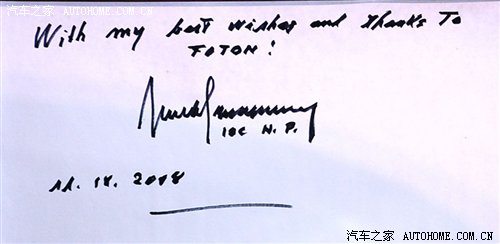 汽车之家 AUTOHOME.COM.CN
With my best wishes and thanks To
FOTON!
IOC H.P.
11.18.2008
汽车之家 AUTOHOME.COM.CN